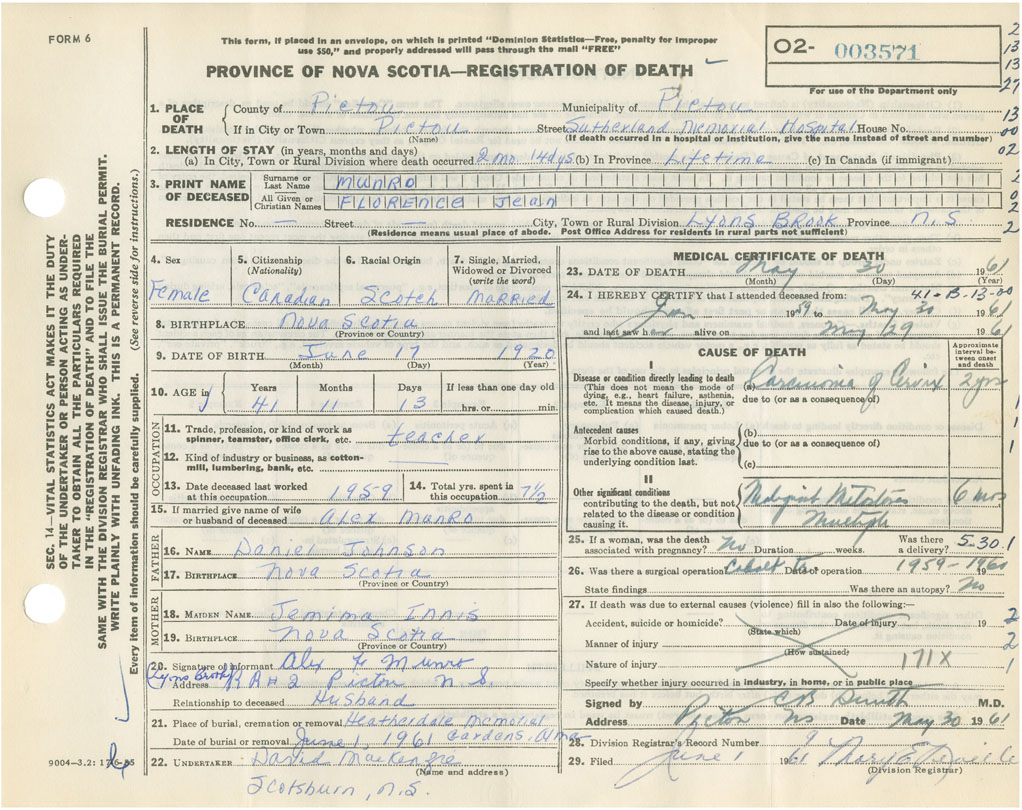 FORM 6
This form, if placed in an envelope, on which is printed "Dominion Statistics—Free, penalty for improper
use $50," and properly addressed will pass through the mail "FREE"
PROVINCE OF NOVA SCOTIA—REGISTRATION OF DEATH
O2- 003571
For use of the Department only
1. PLACE OF DEATH
County of Pictou Municipality of Pictou
If in City or Town Pictou Street Sutherland Memorial Hospital House No.
(Name) (If death occurred in a hospital or institution, give the name instead of street and number)
2. LENGTH OF STAY (in years, months and days)
(a) In City, Town or Rural Division where death occurred 2 mo. 14 dys (b) In Province Lifetime (c) In Canada (if immigrant)
3. PRINT NAME OF DECEASED
Surname or Last Name MUNRO
All Given or Christian Names FLORENCE Jean
RESIDENCE No. — Street — City, Town or Rural Division Lyons Brook Province N.S.
(Residence means usual place of abode. Post Office Address for residents in rural parts not sufficient)
4. Sex 5. Citizenship (Nationality) 6. Racial Origin 7. Single, Married, Widowed or Divorced (write the word)
Female Canadian Scotch Married
8. BIRTHPLACE Nova Scotia
(Province or Country)
9. DATE OF BIRTH June 17 1920
(Month) (Day) (Year)
10. AGE in Years Months Days If less than one day old
41 11 13 hrs. or min.
OCCUPATION
11. Trade, profession, or kind of work as spinner, teamster, office clerk, etc. teacher
12. Kind of industry or business, as cotton-mill, lumbering, bank, etc.
13. Date deceased last worked at this occupation 1959 14. Total yrs. spent in this occupation 7½
15. If married give name of wife or husband of deceased Alex Munro
FATHER
16. NAME Daniel Johnson
17. BIRTHPLACE Nova Scotia
(Province or Country)
MOTHER
18. MAIDEN NAME Jemima Innis
19. BIRTHPLACE Nova Scotia
(Province or Country)
20. Signature of informant Alex F Munro
Lyons Brook
Address R # 2 Pictou N. S.
Relationship to deceased Husband
21. Place of burial, cremation or removal Heatherdale Memorial
Date of burial or removal June 1, 1961 Gardens, Alma
22. UNDERTAKER David MacKenzie
(Name and address)
Scotsburn, N.S.
9004—3.2: 17-6-55
MEDICAL CERTIFICATE OF DEATH
23. DATE OF DEATH May 30 1961
(Month) (Day) (Year)
24. I HEREBY CERTIFY that I attended deceased from: 41-B-13-00
Jan 1959 to May 30 1961
and last saw her alive on May 29 1961
CAUSE OF DEATH
Approximate interval between onset and death
I
Disease or condition directly leading to death
(This does not mean the mode of dying, e.g., heart failure, asthenia, etc. It means the disease, injury, or complication which caused death.)
(a) Carcinoma of Cervix 2 yrs
due to (or as a consequence of)
Antecedent causes
Morbid conditions, if any, giving rise to the above cause, stating the underlying condition last.
(b)
due to (or as a consequence of)
(c)
II
Other significant conditions
contributing to the death, but not related to the disease or condition causing it.
Malignant Metastases 6 mos
Multiple
25. If a woman, was the death associated with pregnancy? No Duration weeks. Was there a delivery? 5-30.1
26. Was there a surgical operation Cobalt Date of operation 1959-1960 19
State findings Was there an autopsy? No
27. If death was due to external causes (violence) fill in also the following:—
Accident, suicide or homicide? Date of injury 19
(State which)
Manner of injury
(How sustained)
Nature of injury 171X
Specify whether injury occurred in industry, in home, or in public place
Signed by C B Smith M.D.
Address Pictou NS Date May 30 1961
28. Division Registrar's Record Number 9
29. Filed June 1 1961
(Division Registrar)
SEC. 14—VITAL STATISTICS ACT MAKES IT THE DUTY
OF THE UNDERTAKER OR PERSON ACTING AS UNDER-
TAKER TO OBTAIN ALL THE PARTICULARS REQUIRED
IN THE "REGISTRATION OF DEATH" AND TO FILE THE
SAME WITH THE DIVISION REGISTRAR WHO SHALL ISSUE THE BURIAL PERMIT.
WRITE PLAINLY WITH UNFADING INK. THIS IS A PERMANENT RECORD.
Every item of information should be carefully supplied. (See reverse side for instructions.)
2
13
13
27
13
00
02
2
0
2
2
1
1
1
2
2
1